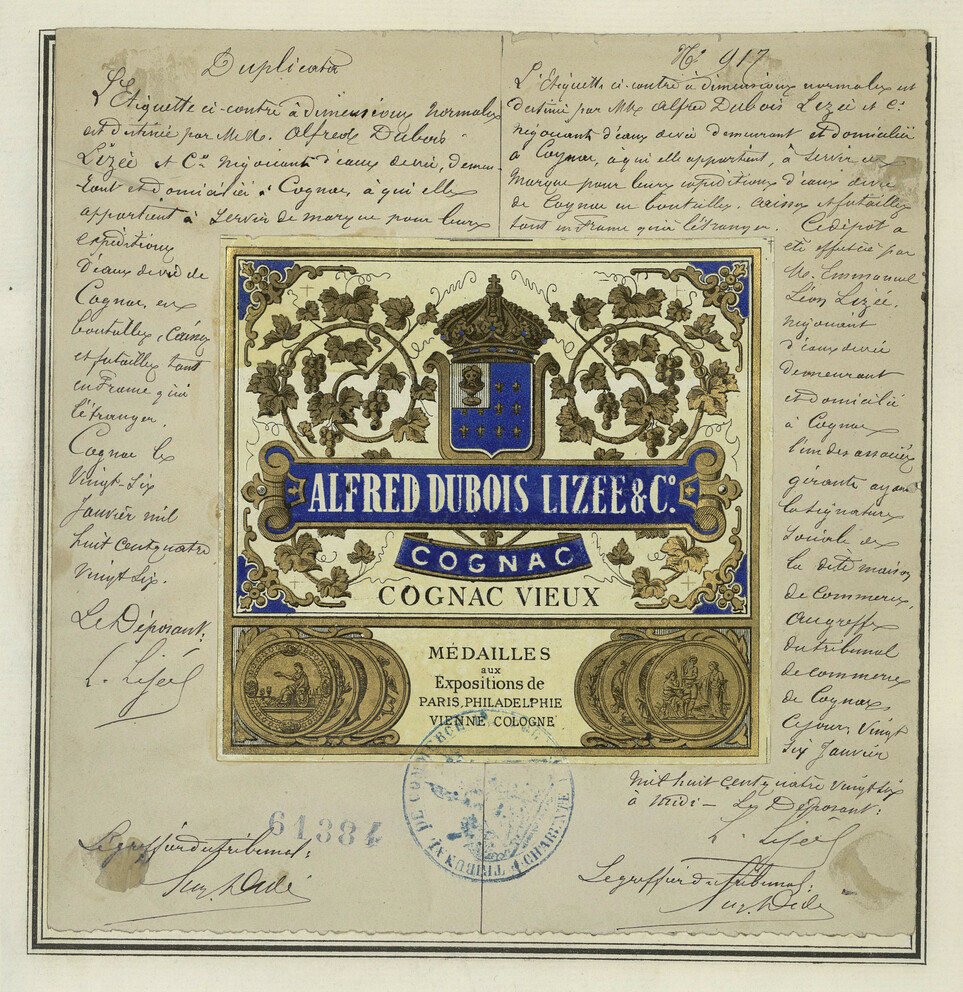 Duplicata
L'Etiquette ci-contre à dimensions normales
est destinée par M.M. Alfred Dubois
Lizée et Cie négociants d'eaux de vie, demeu-
rant et domiciliés à Cognac, à qui elle
appartient à servir de marque pour leurs
expéditions
d'eaux de vie de
Cognac en
bouteilles, caisses
et futailles tant
en France qu'à
l'étranger.
Cognac le
Vingt-Six
Janvier mil
huit cent quatre
Vingt Six.
Le Déposant:
L. Lizée
Le greffier du tribunal:
No 917
L'Etiquette ci-contre à dimensions normales est
destinée par MM. Alfred Dubois Lizée et Cie
négociants d'eaux de vie demeurant et domiciliés
à Cognac, à qui elle appartient, à servir de
marque pour leurs expéditions d'eaux de vie
de Cognac en bouteilles, caisses et futailles
tant en France qu'à l'étranger. Ce dépôt a
été effectué par
M. Emmanuel
Léon Lizée,
négociant
d'eaux de vie
demeurant
et domicilié
à Cognac
l'un des associés
gérants ayant
la signature
sociale de
la dite maison
de commerce,
au greffe
du tribunal
de commerce
de Cognac
ce jour Vingt
Six Janvier
mil huit cent quatre vingt six
à midi - Le Déposant:
L. Lizée
Le greffier du Tribunal:
ALFRED DUBOIS LIZÉE & Co.
COGNAC
COGNAC VIEUX
MÉDAILLES
aux
Expositions de
PARIS, PHILADELPHIE
VIENNE, COLOGNE
TRIBUNAL DE COMMERCE
CHARENTE
61384